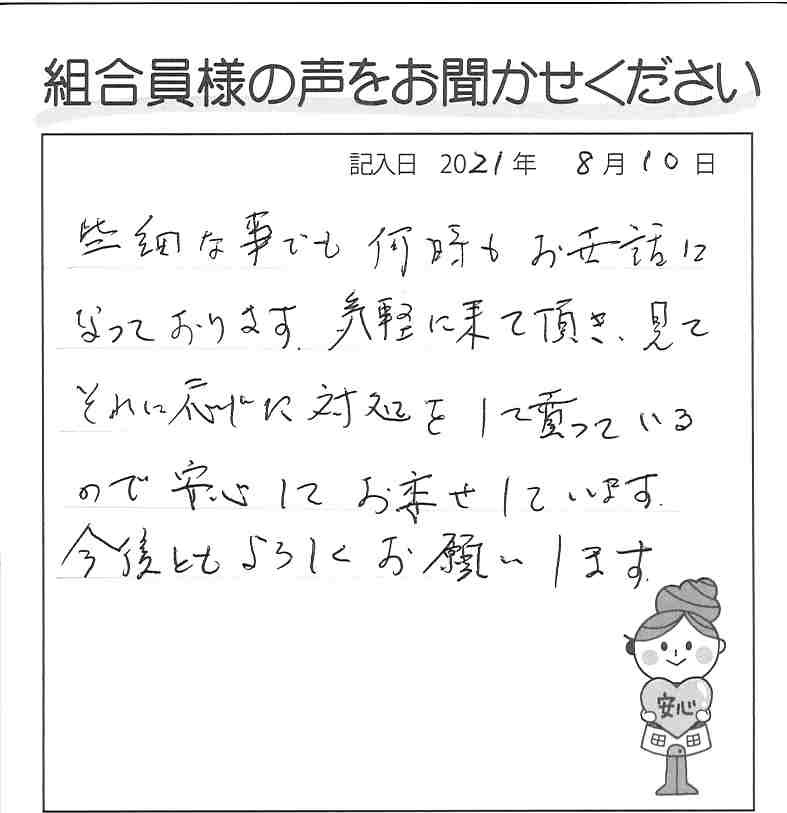 組合員様の声をお聞かせください
記入日 2021年 8月10日
些細な事でも何時もお世話に
なっております。気軽に来て頂き、見て
それに応じた対処をして貰っている
ので安心してお任せしています。
今後ともよろしくお願いします。
安心